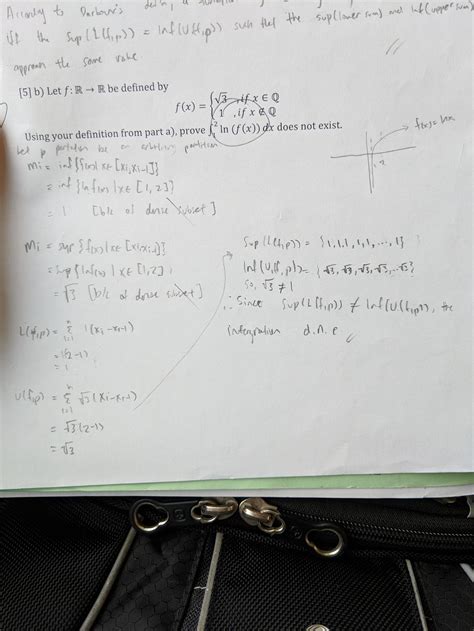 According to Darboux's defn, a
iff the sup(L(f,p)) = inf(U(f,p)) such that the sup(lower sum) and inf(upper sum)
approach the same value.
[5] b) Let f: ℝ → ℝ be defined by
f(x) = {√3 , if x ∈ ℚ
1 , if x ∉ ℚ
Using your definition from part a), prove ∫₁² ln (f(x)) dx does not exist.
Let p partition be an arbitrary partition
f(x)=lnx
mi = inf{f(x)|x∈[xi,xi-1]}
= inf{lnf(x)|x∈[1,2]}
= 1 [b/c of dense subset]
Mi = sup{f(x)|x∈[xi,xi-1]}
= sup{lnf(x)|x∈[1,2]}
= √3 [b/c of dense subset]
L(f,p) = Σ 1(xi-xi-1)
= 1(2-1)
= 1
U(f,p) = Σ √3(xi-xi-1)
= √3(2-1)
= √3
Sup(L(f,p)) = {1,1,1,1,...,1}
Inf(U(f,p)) = {√3,√3,√3,√3,...√3}
So, √3 ≠ 1
∴ Since Sup(L(f,p)) ≠ Inf(U(f,p)), the
integration d.n.e